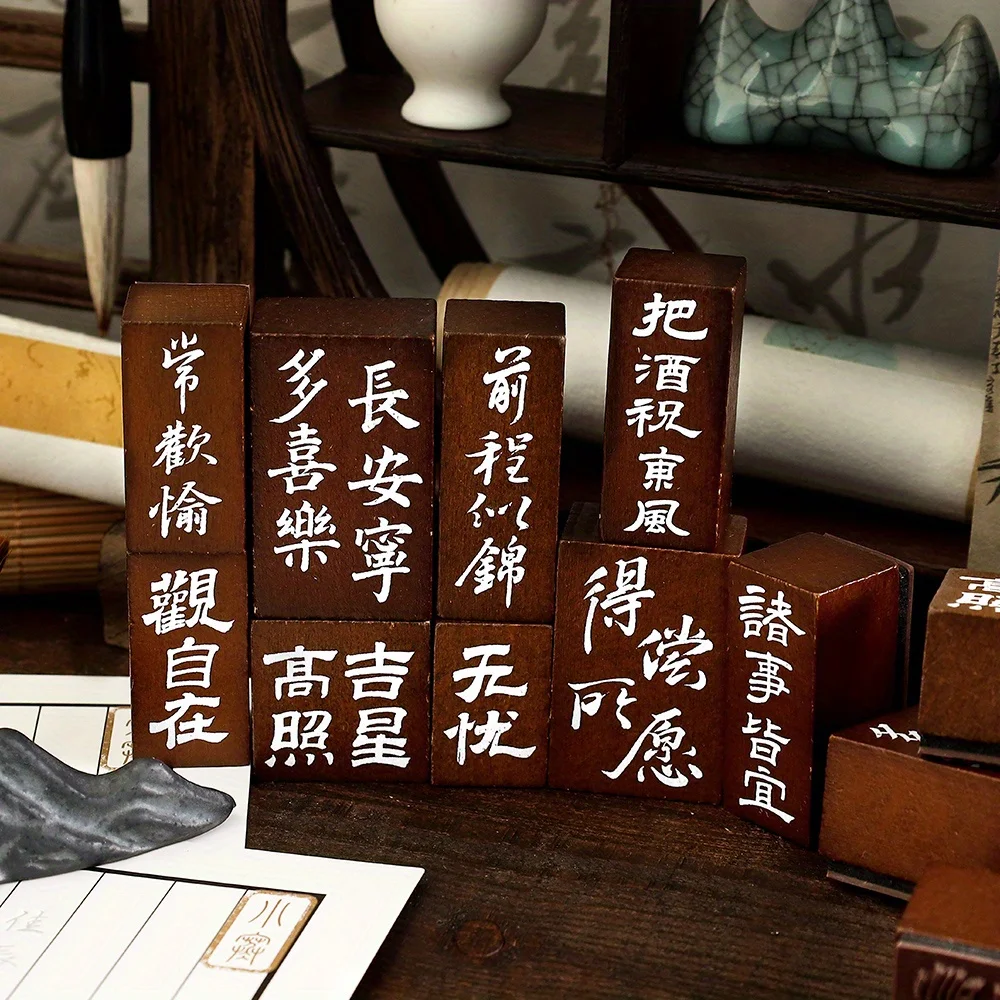 常歡愉
長安寧
多喜樂
前程似錦
把酒祝東風
觀自在
吉星
高照
无忧
得偿
所愿
諸事皆宜
高照